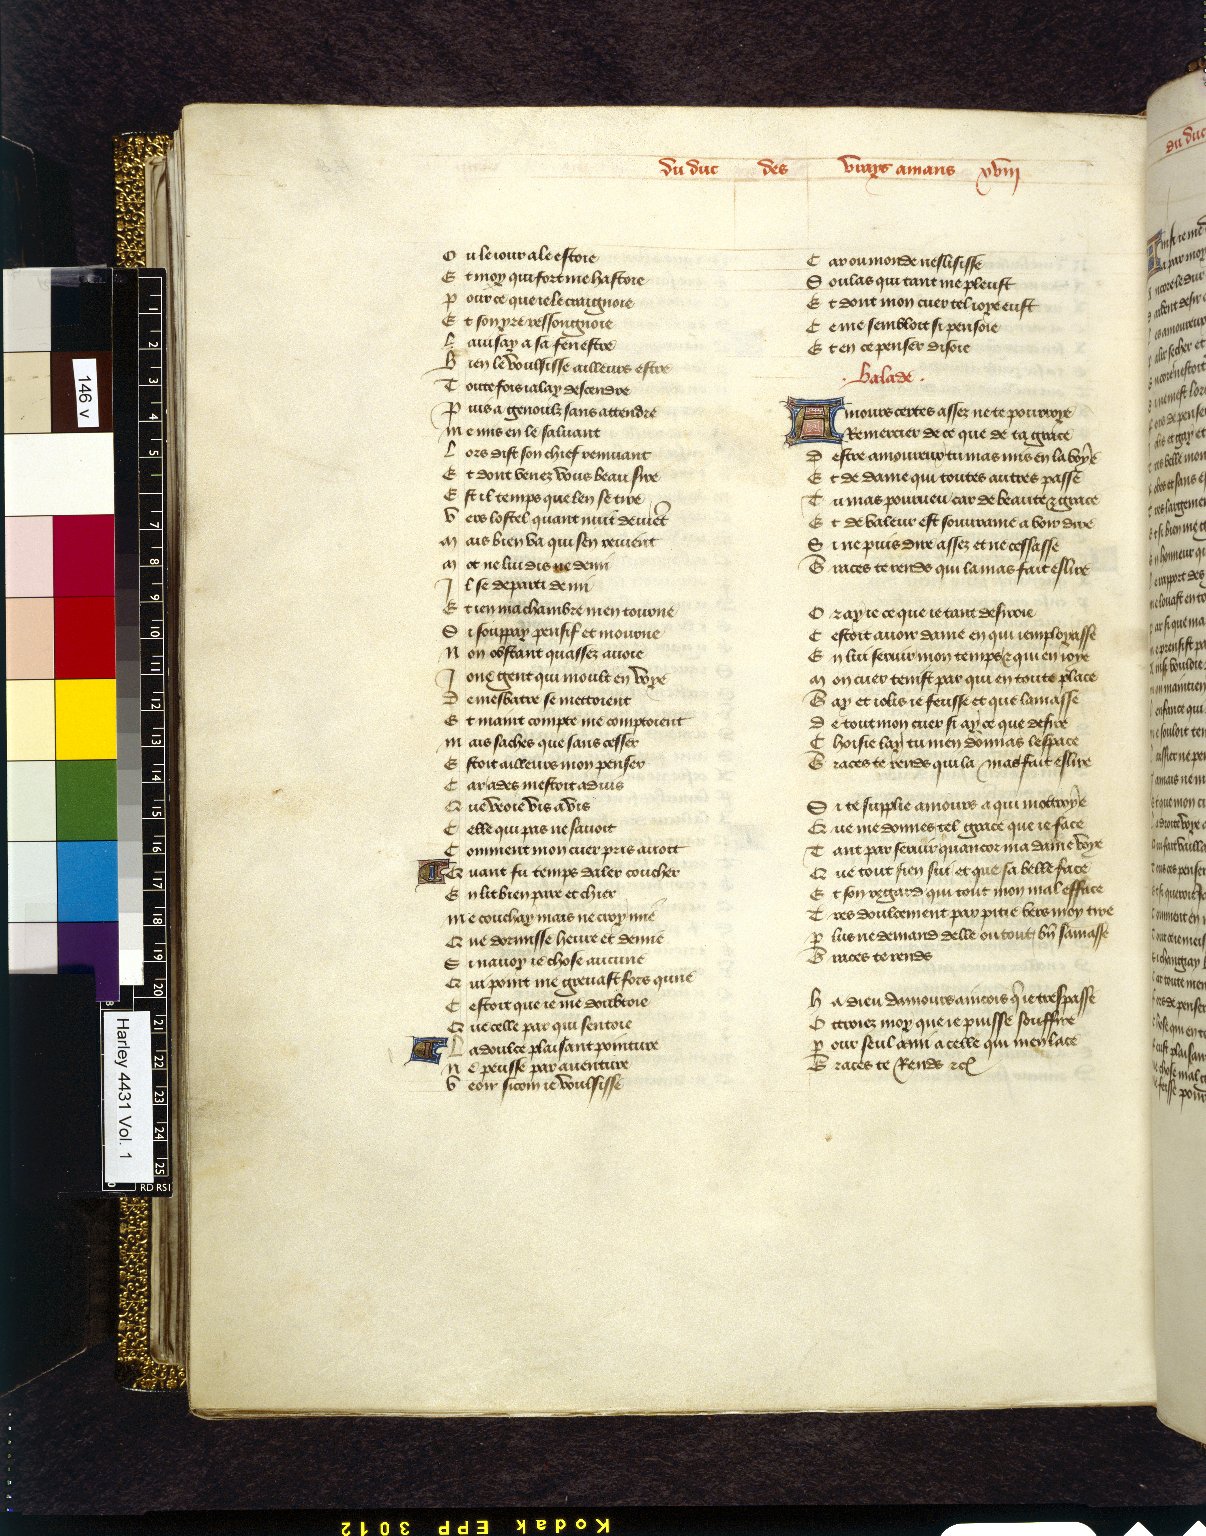 du duc des vrays amans xviij
O u le iour ale estoie
E t moy qui fort me hastoie
P our ce que ie le craignoie
E t son yre ressongnoie
L auisay a sa fenestre
B ien le voulsisse ailleurs estre
T outefois ialay descendre
P uis a genoulz sans attendre
M e mis en le saluant
L ors dist son chief remuant
E t dont venez vous beau sire
E st il temps que len se tire
V ers lostel quant nuit deuiet
M ais bien va qui sen reuient
M ot ne lui dis ne demi
I l se departi de mi
E t ien ma chambre men tourne
S i souppay pensif et mourne
N on obstant quassez auoie
I one gent qui moult en voye
D e mesbatre se mettoient
E t maint compte me comptoient
M ais saches que sans cesser
E stoit ailleurs mon penser
C ar ades mestoit aduis
Q ue veoie vis a vis
C elle qui pas ne sauoit
C omment mon cuer pris auoit
Q uant fu temps daler coucher
E n lit bien pare et chier
M e couchay mais ne croy mie
Q ue dormisse heure et demie
S i nauoy ie chose aucune
Q ui point me greuast fors qune
C estoit que ie me doubtoie
Q ue celle par qui sentoie
L a doulce plaisant pointure
N e peusse par auenture
V eoir sicom ie voulsisse
C ar ou monde neslisisse
S oulas qui tant me pleust
E t dont mon cuer tel ioye eust
C e me sembloit si pensoie
E t en ce penser disoie
. Balade .
Amours certes assez ne te pourroye
Remercier de ce que de ta grace
D estre amoureux tu mas mis en la voye
E t de dame qui toutes autres passe
T u mas pourueu car de beaute z grace
E t de valeur est souuraine a voir dire
S i ne puis dire assez et ne cessasse
G races te rends qui la mas fait eslire
O r ay ie ce que ie tant desiroie
C estoit auoir dame en qui iemployasse
E n lui seruir mon temps z qui en ioye
M on cuer tenist par qui en toute place
G ay et iolis ie feusse et que lamasse
D e tout mon cuer si ay ce que desire
C hoisie lay tu men donnas lespace
G races te rends qui la mas fait eslire
S i te supplie amours a qui mottroye
Q ue me donnes tel grace que ie face
T ant par seruir quancor ma dame voye
Q ue tout sien sui et que sa belle face
E t son regard qui tout mon mal efface
T res doulcement par pitie vers moy tire
P lus ne demand delle ou tout bn samasse
G races te rends
H a dieu damours aincois q ie trespasse
O ttroiez moy que ie puisse souffire
P our seul ami a celle qui men lace
G races te Rends zc
du duc
146 v
Harley 4431 Vol. 1
1
2
3
4
5
6
7
8
9
10
11
12
13
14
15
16
17
18
19
20
21
22
23
24
25
Kodak EPP 3012